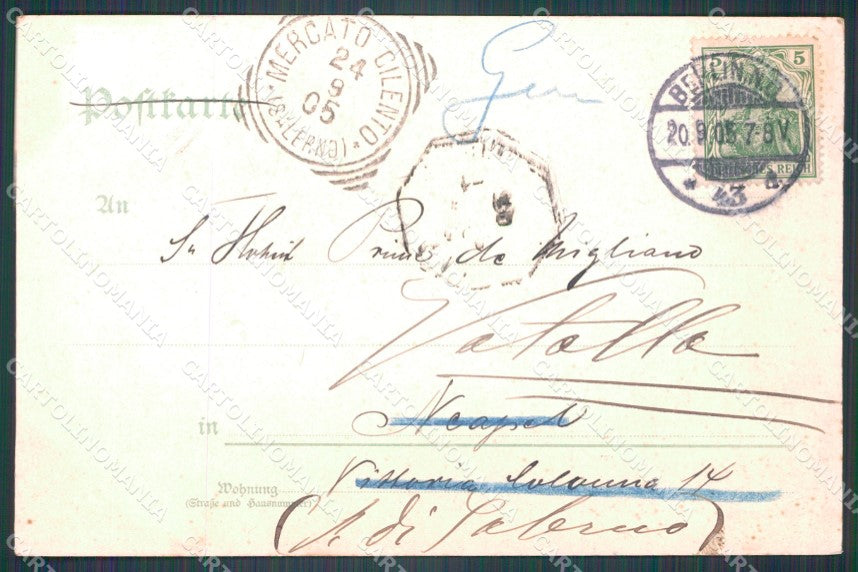 Postkarte
MERCATO CILENTO
24
9
05
(SALERNO)
5
DEUTSCHES REICH
BERLIN, N.W.
20.9.05.7-8V.
* 43 a.
An
Sr Hoheit Prinz de Migliano
Vatolla
in Neapel
Wohnung
(Straße und Hausnummer)
Vittoria Colonna 14
(P. di Salerno)
CARTOLINOMANIA